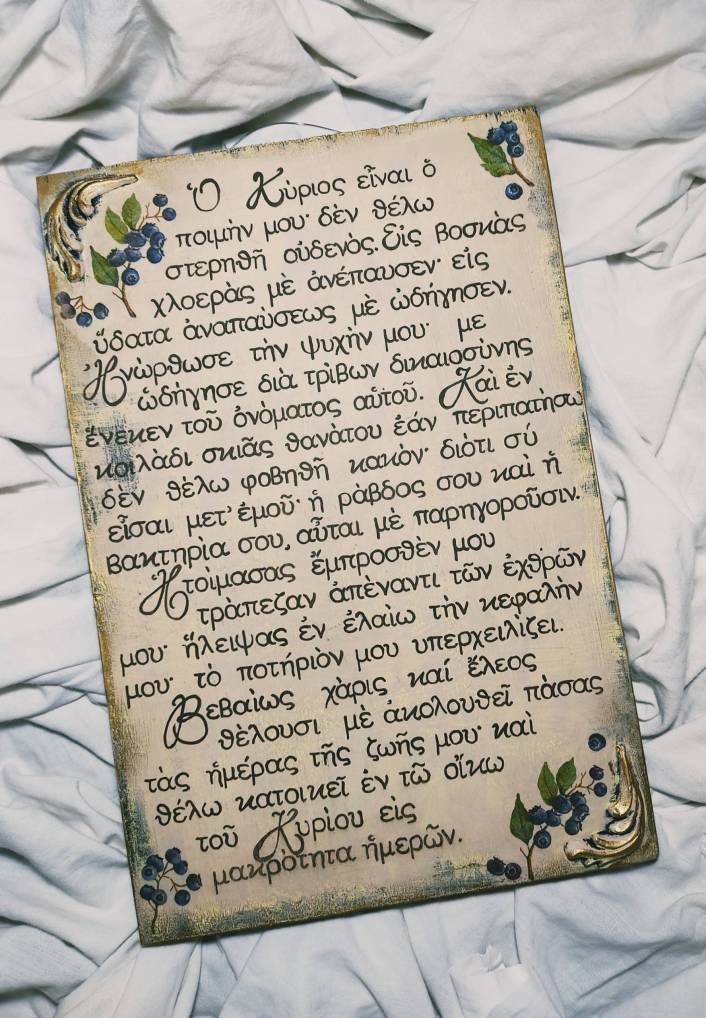 Ὁ Κὺριος εἶναι ὁ
ποιμὴν μου· δὲν θέλω
στερηθῆ οὐδενὸς. Εἰς βοσκὰς
χλοερὰς μὲ ἀνέπαυσεν· εἰς
ὕδατα ἀναπαὺσεως μὲ ὡδήγησεν.
Ἠνὼρθωσε τὴν ψυχὴν μου· με
ὡδήγησε διὰ τρὶβων δικαιοσὺνης
ἕνεκεν τοῦ ὀνὸματος αὑτοῦ. Καὶ ἐν
κοιλὰδι σκιᾶς θανὰτου ἐάν περιπατὴσω
δὲν θὲλω φοβηθῆ κακὸν· διὸτι σύ
εἶσαι μετ' ἐμοῦ· ἡ ρὰβδος σου καὶ ἡ
βακτηρὶα σου, αὗται μὲ παρηγοροῦσιν.
Ἡτοὶμασας ἔμπροσθὲν μου
τρὰπεζαν ἀπὲναντι τῶν ἐχθρῶν
μου· ἤλειψας ἐν ἐλαὶω τὴν κεφαλὴν
μου· τὸ ποτήριὸν μου υπερχειλὶζει.
Βεβαὶως χὰρις καί ἔλεος
θὲλουσι μὲ ἀκολουθεῖ πὰσας
τὰς ἡμέρας τῆς ζωῆς μου· καὶ
θέλω κατοικεῖ ἐν τῶ οἴκω
τοῦ Κυρίου εἰς
μακρὸτητα ἡμερῶν.